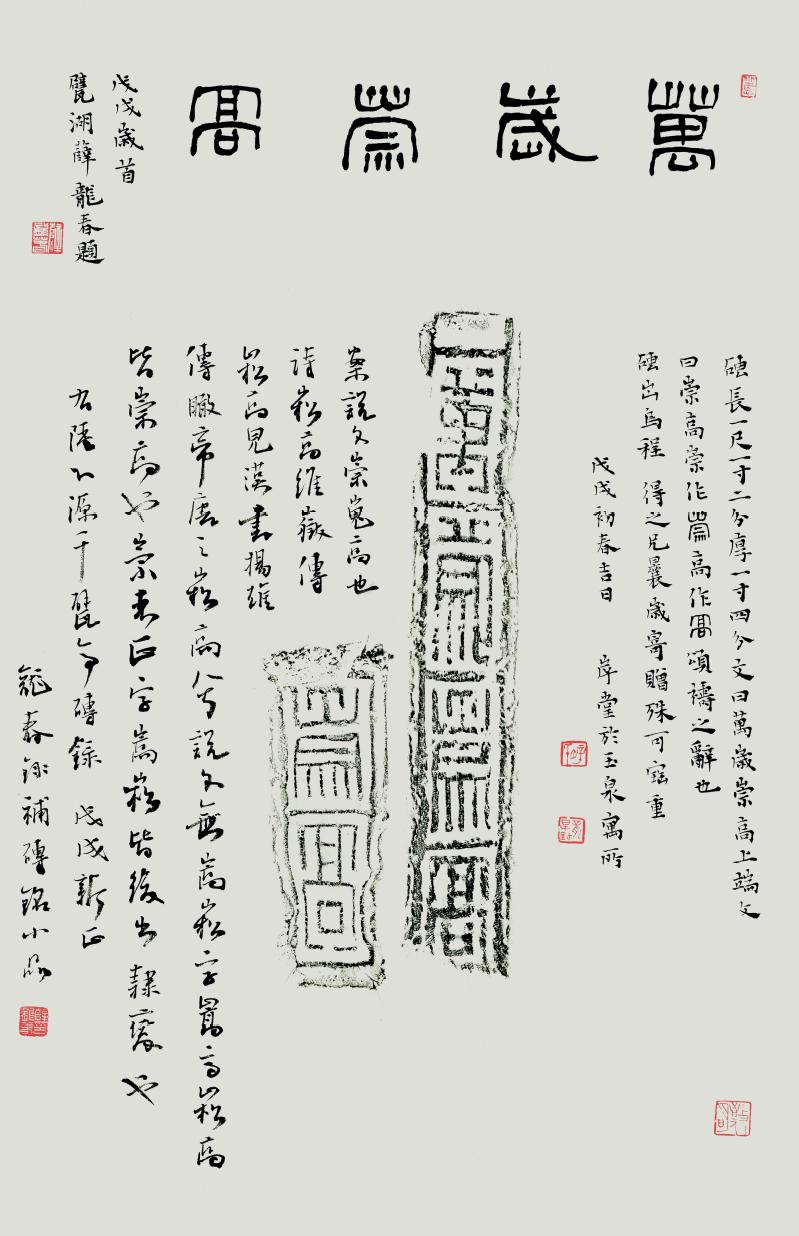 萬歲崇高
戊戌歲首
甓湖薛龍春題
磚長一尺一寸二分厚一寸四分文曰萬歲崇高上端文
曰崇高崇作𡶽高作髙頌禱之辭也
磚出烏程得之兄曩歲寄贈殊可寶重
戊戌初春吉日 岸堂於玉泉寓所
萬歲崇高
崇高
案說文崇嵬高也
詩崧高維嶽傳
崧高見漢書揚雄
傳瞰帝唐之崧高兮說文無嵩崧字嵩高崧高
皆崇高也崇者正字嵩崧皆後出隸變也
右陸心源千甓亭磚錄 戊戌新正
龍春錄補磚銘小品